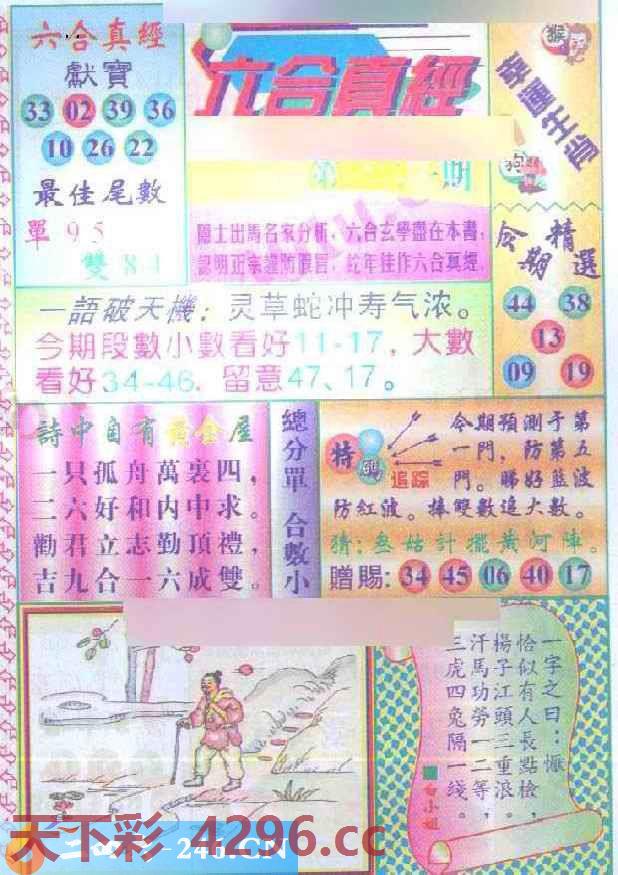 六合真經
獻寶
33 02 39 36
10 26 22
最佳尾數
單 95
雙 84
六合真經
第 期
隱士出馬名家分析，六合玄學盡在本書，
認明正宗謹防跟冒，蛇年佳作六合真經。
猴
幸運生肖
狗
今期精選
44 38
13
09 19
一語破天機：灵草蛇冲寿气浓。
今期段數小數看好11-17，大數
看好34-46，留意47、17。
詩中自有黃金屋
一只孤舟萬裏四，
二六好和内中求。
勸君立志勤頂禮，
吉九合一六成雙。
總分單 合數小
特碼
追踪
今期預測于第
一門，防第五
門。睇好藍波
防紅波。捧雙數追大數。
猜：叁姑計擺黄河陣。
贈賜：34 45 06 40 17
一字之曰：慨
恰似有人長點檢，
楊子江頭三重浪。
汗馬功勞一二等，
三虎四兔隔一綫。
白小姐
天下彩 4296.cc
246.CN